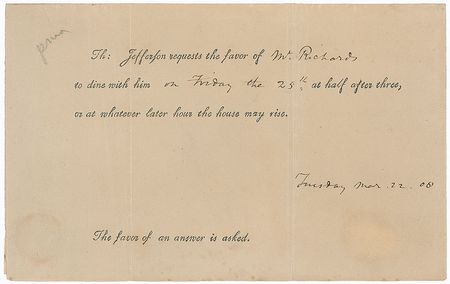 Th: Jefferson requests the favor of Mr. Richards
to dine with him on Friday the 25th. at half after three,
or at whatever later hour the house may rise.
Tuesday Mar. 22. 08
The favor of an answer is asked.